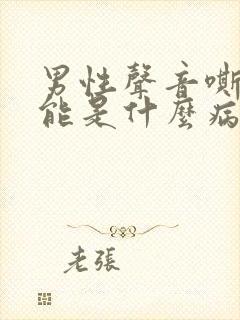 男性聲音嘶
能是什麼病
老張